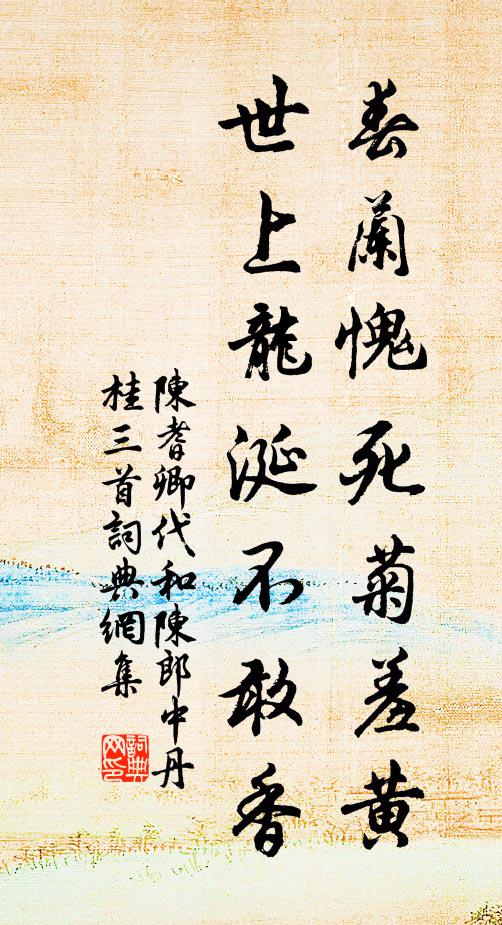 春蘭愧死菊羞黃
世上龍涎不敢香
陳耆卿代和陳郎中丹
桂三首詞典網集
詞典網印